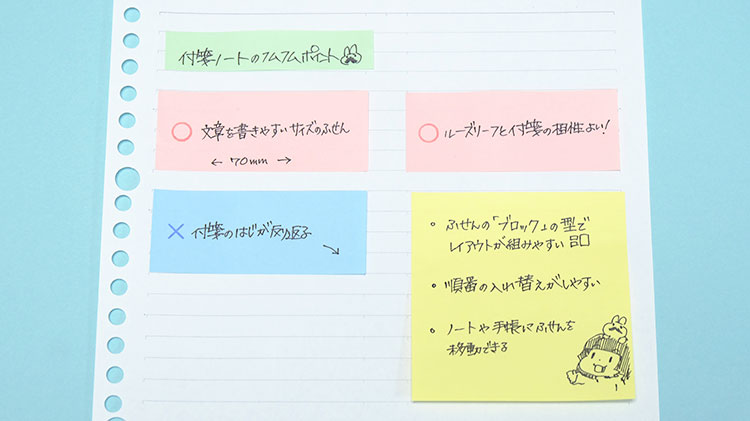 付箋ノートのフムフムポイント
○ 文章を書きやすいサイズのふせん
← 70mm →
○ ルーズリーフと付箋の相性よい!
× 付箋のはじが反り返る
・ふせんの「ブロック」の型で
レイアウトが組みやすい
・順番の入れ替えがしやすい
・ノートや手帳にふせんを
移動できる